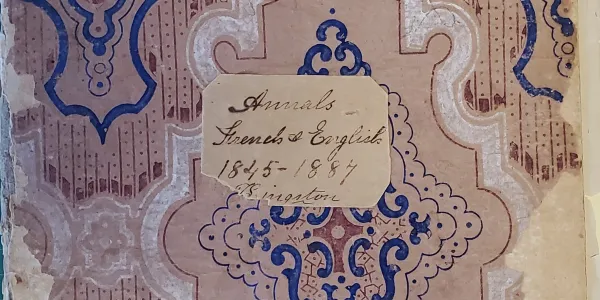 Annals
French & English
1845-1887
Kingston